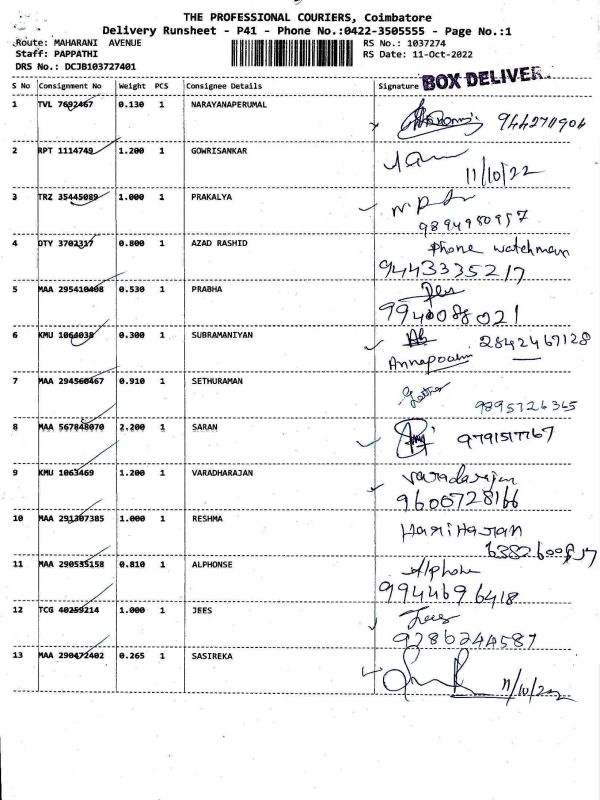 THE PROFESSIONAL COURIERS, Coimbatore
Delivery Runsheet - P41 - Phone No.:0422-3505555 - Page No.:1
Route: MAHARANI AVENUE
RS No.: 1037274
Staff: PAPPATHI
RS Date: 11-Oct-2022
DRS No.: DCJB103727401
BOX DELIVER.
S No Consignment No Weight PCS Consignee Details Signature
1 TVL 7692467 0.130 1 NARAYANAPERUMAL
2 RPT 1114749 1.200 1 GOWRISANKAR
11/10/22
3 TRZ 35445089 1.000 1 PRAKALYA
9894980957
4 OTY 3702317 0.800 1 AZAD RASHID Phone watchman
9443335217
5 MAA 295410408 0.530 1 PRABHA
994008 8021
6 KMU 1064038 0.300 1 SUBRAMANIYAN 2842467128
7 MAA 294560467 0.910 1 SETHURAMAN
9895726365
8 MAA 567848070 2.200 1 SARAN 9791517767
9 KMU 1063469 1.200 1 VARADHARAJAN Varadarajan
9600728166
10 MAA 291307385 1.000 1 RESHMA HARIHARAN
11 MAA 290535158 0.810 1 ALPHONSE Alphone
9944696418
12 TCG 40259214 1.000 1 JEES Jees
9286244587
13 MAA 290472402 0.265 1 SASIREKA
11/10/22